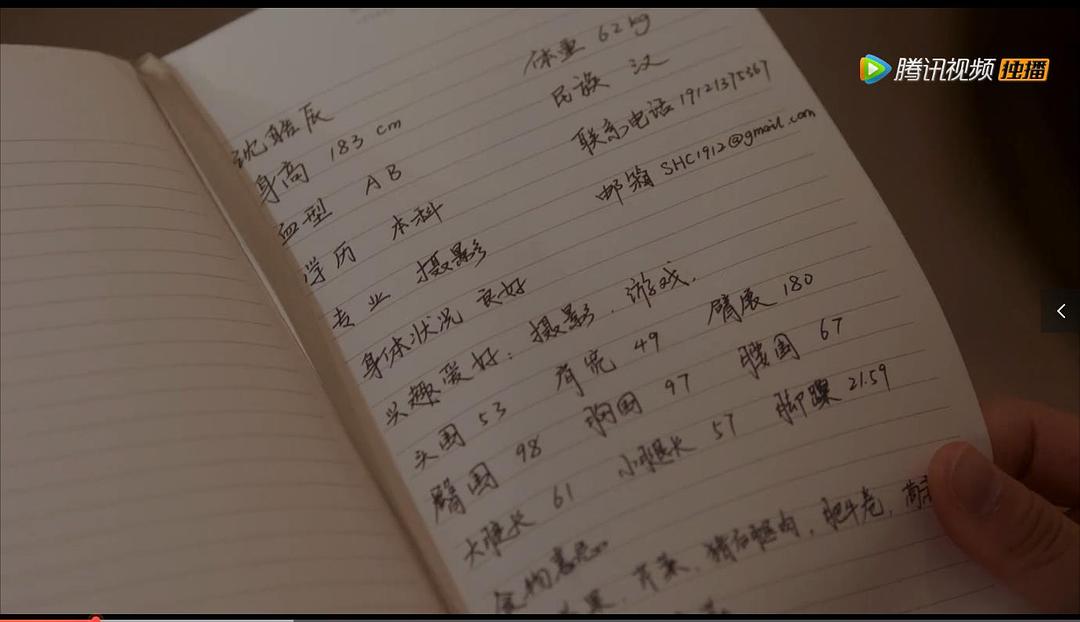 腾讯视频 独播
沈皓辰 体重 62kg
身高 183 cm 民族 汉
血型 AB 联系电话 19121375367
学历 本科 邮箱 SHC1912@gmail.com
专业 摄影
身体状况 良好
兴趣爱好：摄影．游戏．
头围 53 肩宽 49 臂展 180
臀围 98 胸围 97 腰围 67
大腿长 61 小腿长 57 脚踝 21.59
食物禁忌
芹菜、猪后腿肉，肥牛